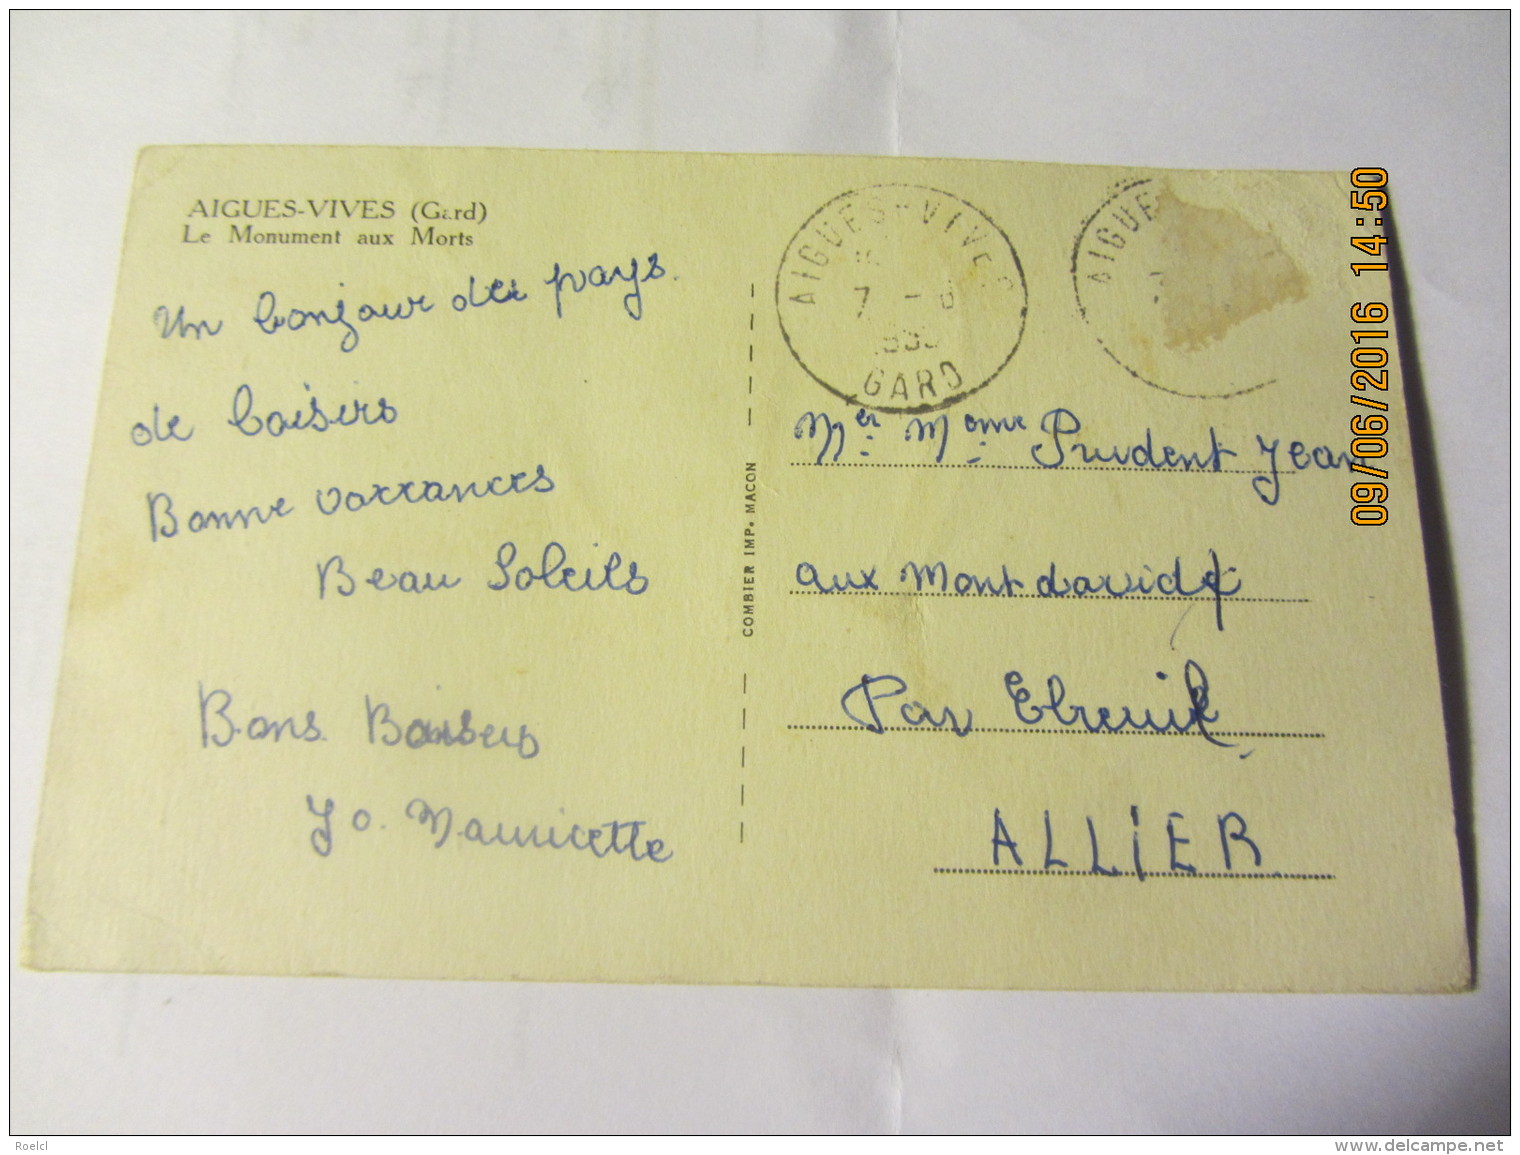 AIGUES-VIVES (Gard)
Le Monument aux Morts
Un bonjour des pays.
de baisers
Bonne vaccances
Beau Soleils
Bons Baisers
Jo. Mauricette
COMBIER IMP. MACON
AIGUES-VIVES
7 -
GARD
AIGUE
Mer Mome Prudent Jean
aux Mont david
Par Ebreuil
ALLIER
09/06/2016 14:50
Roelcl
www.delcampe.net